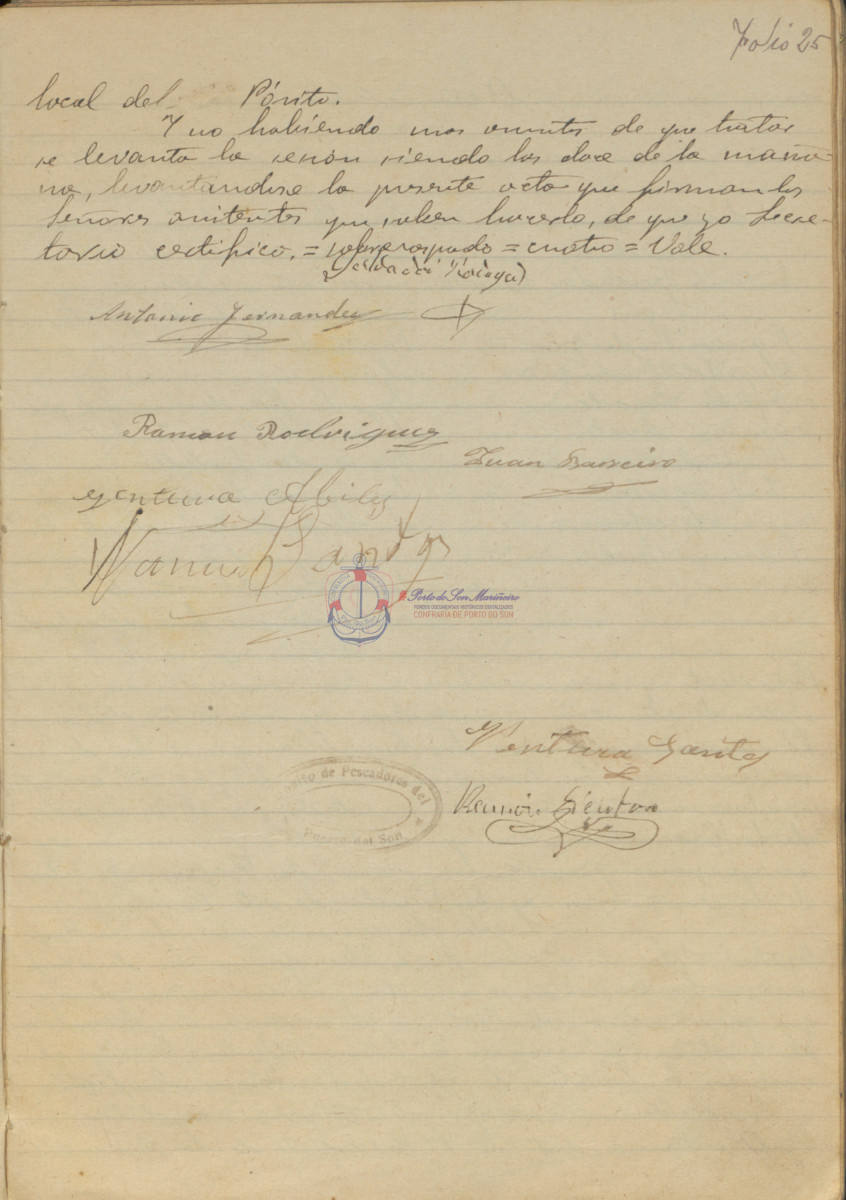 Folio 25
local del Pósito.
Y no habiendo mas asuntos de que tratar
se levanta la sesión siendo las doce de la maña-
na, levantandose la presente acta que firman los
Señores asistentes que saben hacerlo, de que yo Secre-
tario certifico. = sobrerraspado = cuatro = Vale.
Antonio Fernandez
Ramon Rodriguez
Juan Barreiro
Ventura Abilez
Manuel Santos
Porto do Son Mariñeiro
FONDOS DOCUMENTAIS HISTÓRICOS DIXITALIZADOS
CONFRARÍA DE PORTO DO SON
Ventura Santos
Pósito de Pescadores del
Puerto del Son
Ramón